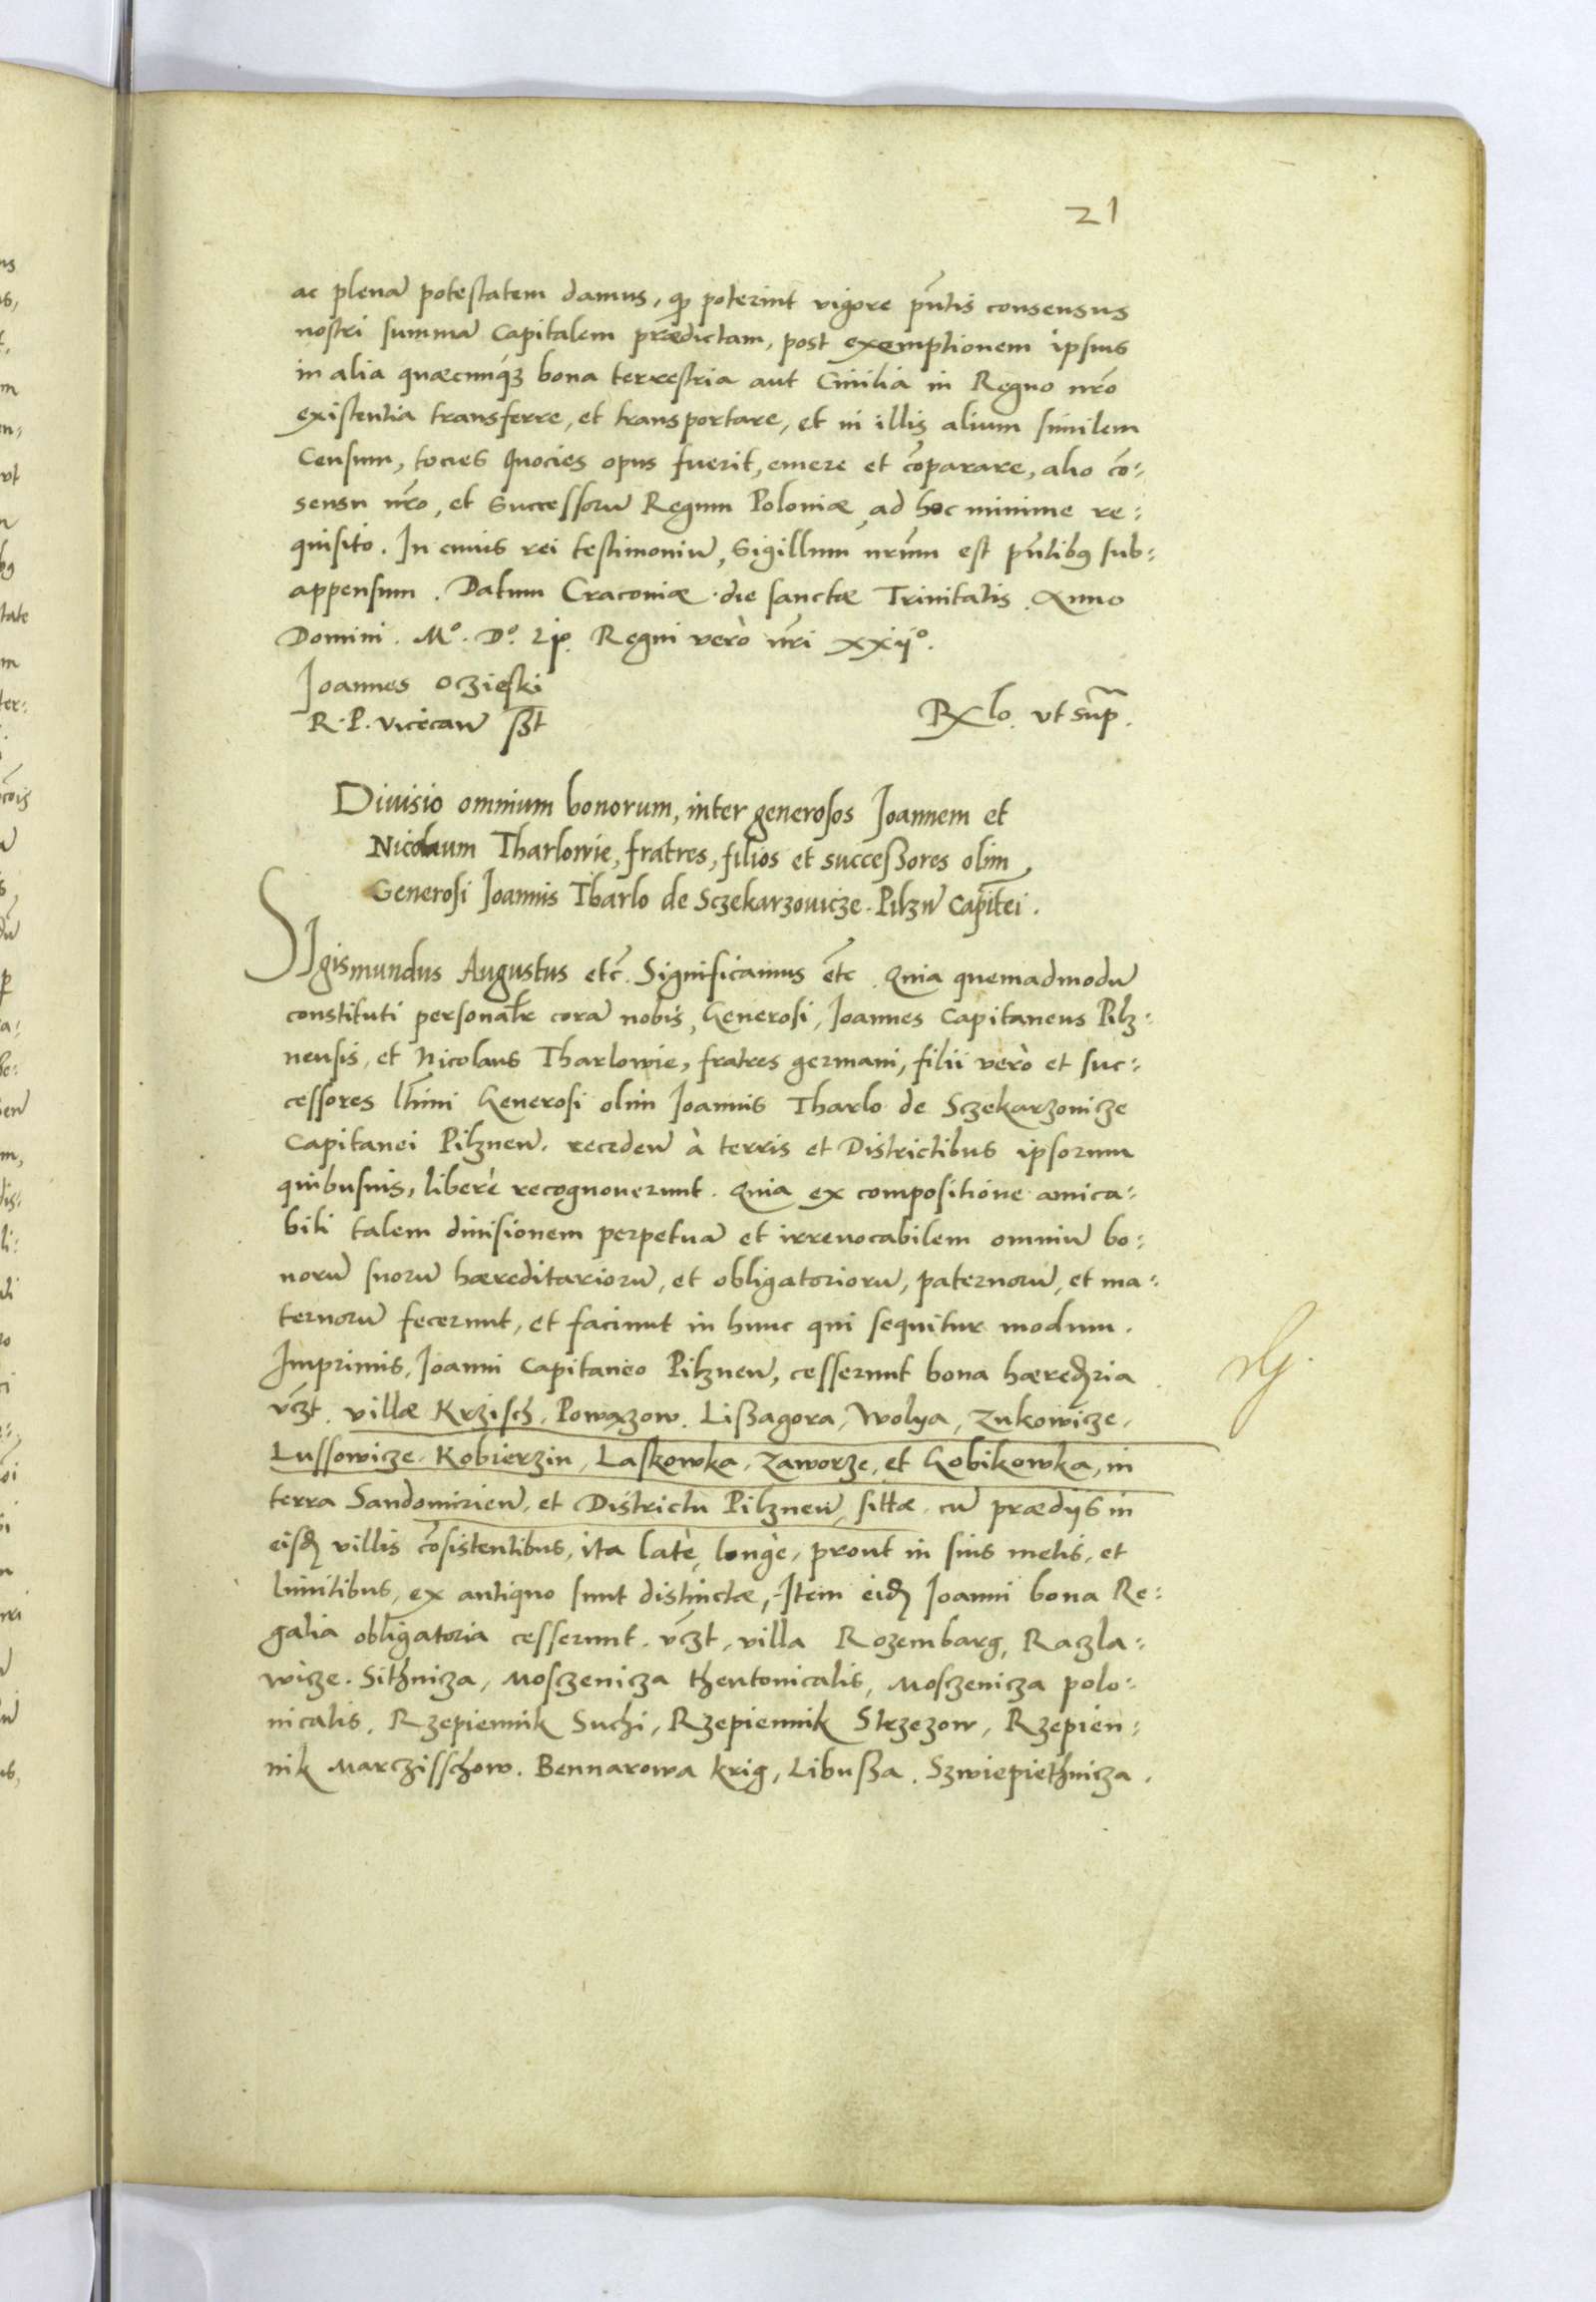 21
ac plenā potestatem damus, q̄ poterint vigore pn̄tis consensus
nostri summā Capitalem prædictam, post exemptionem ipsius
in alia quæcunq́ꝫ bona terrestria aut Ciuilia in Regno nr̄o
existentia transferre, et transportare, et in illis alium similem
Censum, tocies quocies opus fuerit, emere et cōparare, alio cō:
sensu nr̄o, et Successorū Regum Poloniæ, ad hoc minime re:
quisito. In cuius rei testimoniū, Sigillum nr̄um est pn̄tibꝰ sub:
appensum. Datum Cracouiæ die sanctæ Trinitatis. Anno
Domini. Mᵒ. Dᵒ. Regni verò nr̄i xxijᵒ.
Joannes oczieski
R. P. Vicecan̄ sszt
Rxlo. vt sup̄.
Diuisio omnium bonorum, inter generosos Joannem et
Nicolaum Tharlowie, fratres, filios et successores olim
Generosi Joannis Tharlo de Sczekarzouicze. Pilzn̄ Capitei.
SIgismundus Augustus etc̄. Significamus etc̄. Quia quemadmodū
constituti personalr̄ corā nobis, Generosi, Joannes Capitaneus Pilz:
nensis, et Nicolaus Tharlowie, fratres germani, filii verò et suc:
cessores lt̄imi Generosi olim Joannis Tharlo de Sczekarzouicze
Capitanei Pilznen̄. receden̄ à terris et Districtibus ipsorum
quibusuis, liberè recognouerunt. Quia ex compositione amica:
bili talem diuisionem perpetuā et irreuocabilem omniū bo:
norū suorū hæreditariorū, et obligatoriorū, paternorū, et ma:
ternorū fecerunt, et faciunt in hunc qui sequitur modum.
Imprimis, Joanni Capitaneo Pilznen̄, cesserunt bona hæredria
vc̄zt. villæ Krzisch, Powązow. Lißagora, Wolya, Zukowicze,
Lussowicze, Kobierzin, Laskowka, Zaworze, et Gobikowka, in
terra Sandomirien̄. et Districtu Pilznen̄, sittæ. cū prædijs in
eisd villis cōsistentibus, ita latè, longè, prout in suis metis, et
limitibus, ex antiquo sunt distinctæ, Item eid Joanni bona Re:
galia obligatoria cesserunt. vc̄zt, villa Rozembarg, Raczla:
wicze. Sithnicza, Mosczenicza theutonicalis, Mosczenicza polo:
nicalis. Rzepiennik Suchi, Rzepiennik Strzezow, Rzepien:
nik Marczisschow. Bennarowa krig, Libußa. Szwiepiethnicza.